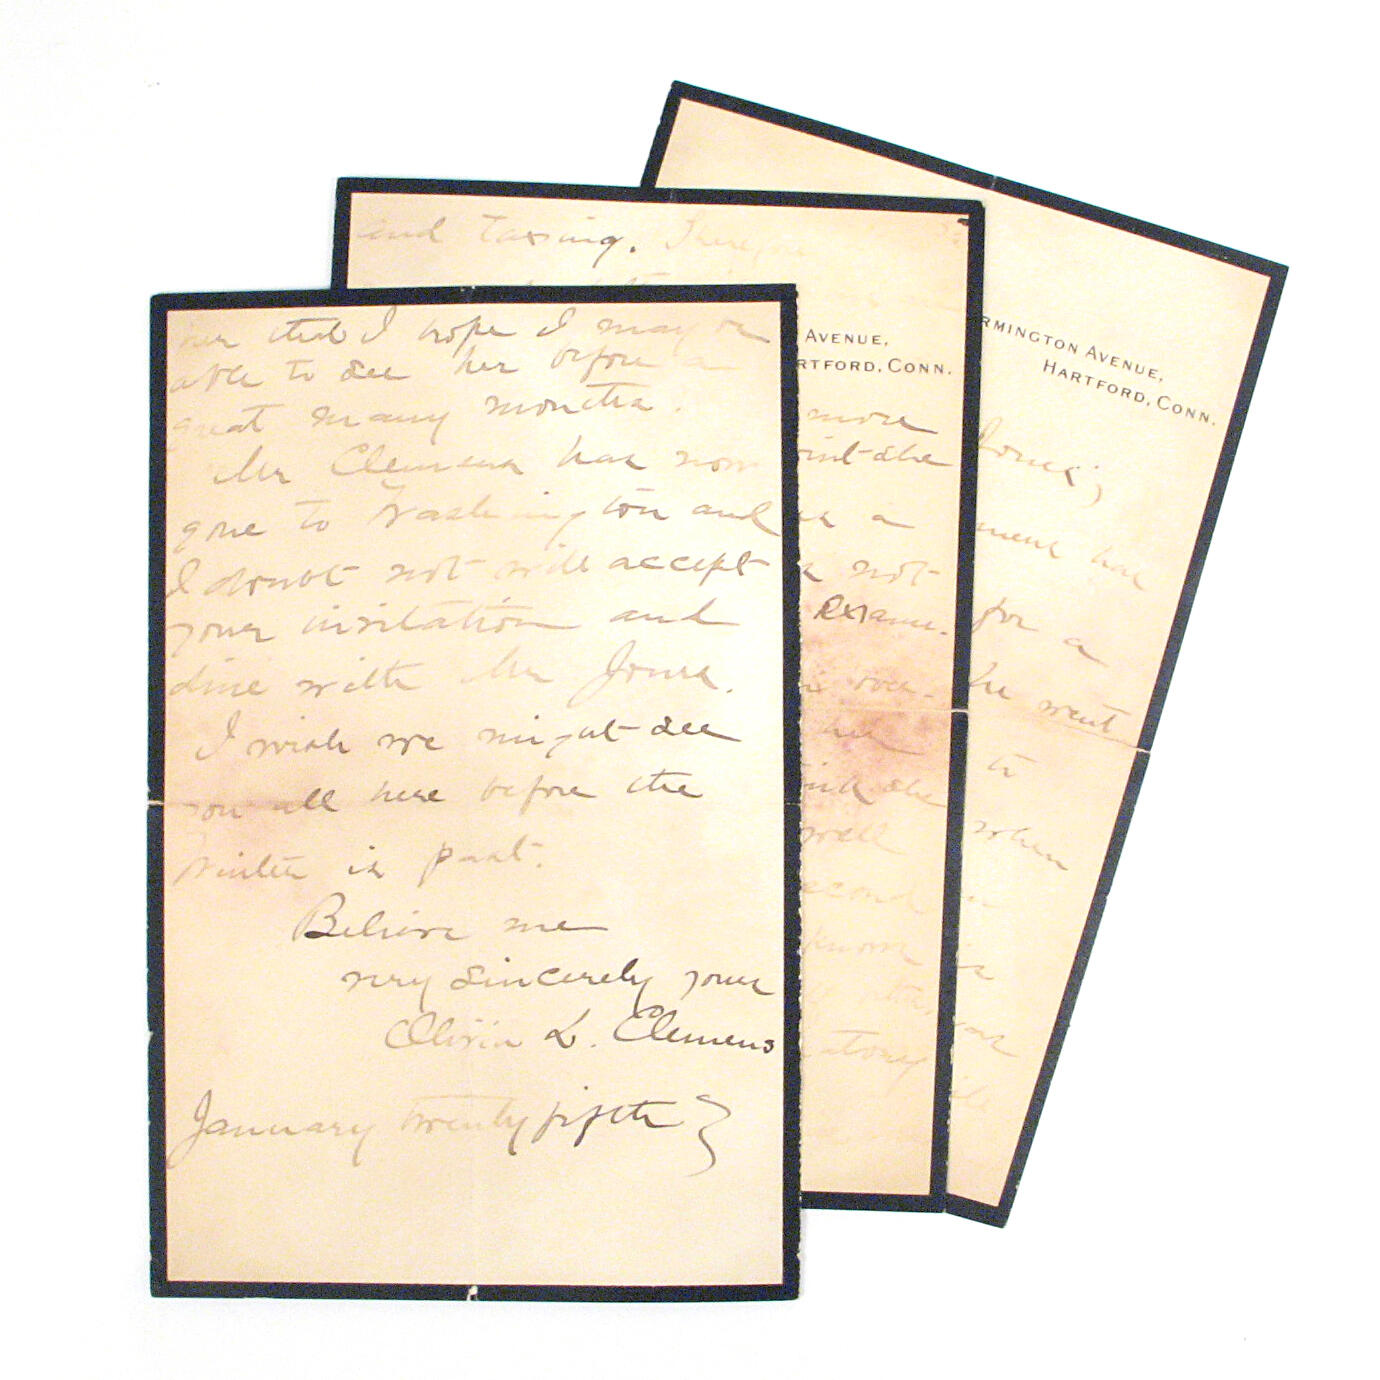 her that I hope I may be
able to see her before a
great many months.
Mr Clemens has now
gone to Washington and
I doubt not will accept
your invitation and
dine with Mr Jones.
I wish we might see
you all here before the
Winter is past.
Believe me
very sincerely yours
Olivia L. Clemens
January twenty fifth
and taxing. Therefore
Avenue,
rtford, Conn.
more
she
a
not
exam-
over.
her
she
well
second
known
rmington Avenue,
Hartford, Conn.
Jones;
has
for a
he went
to
when
is